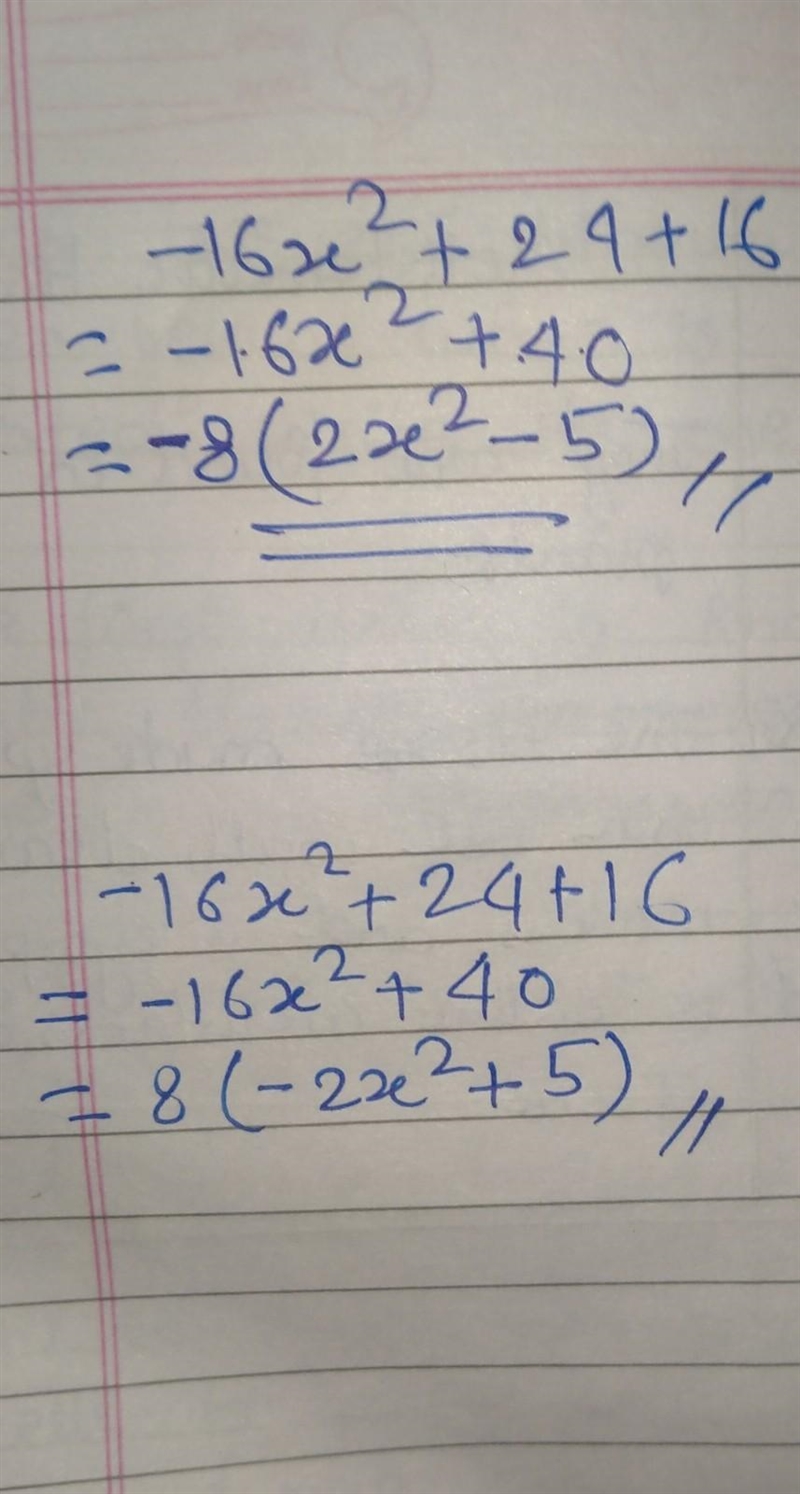 -16x² + 24 + 16
= -16x² + 40
= -8(2x² - 5) //
-16x² + 24 + 16
= -16x² + 40
= 8(-2x² + 5) //